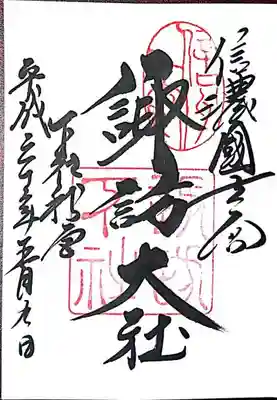 信濃國一之宮
諏訪大社
下社秋宮
平成三十年五月九日